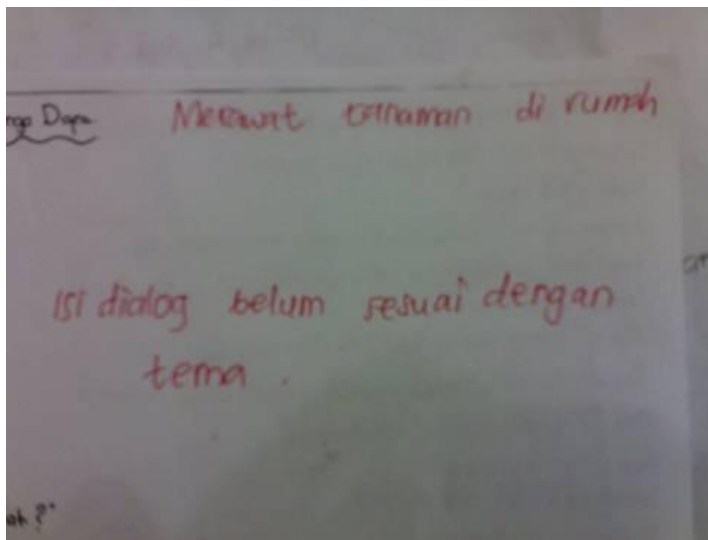 Dapa Merawat tanaman di rumah
isi dialog belum sesuai dengan
tema .